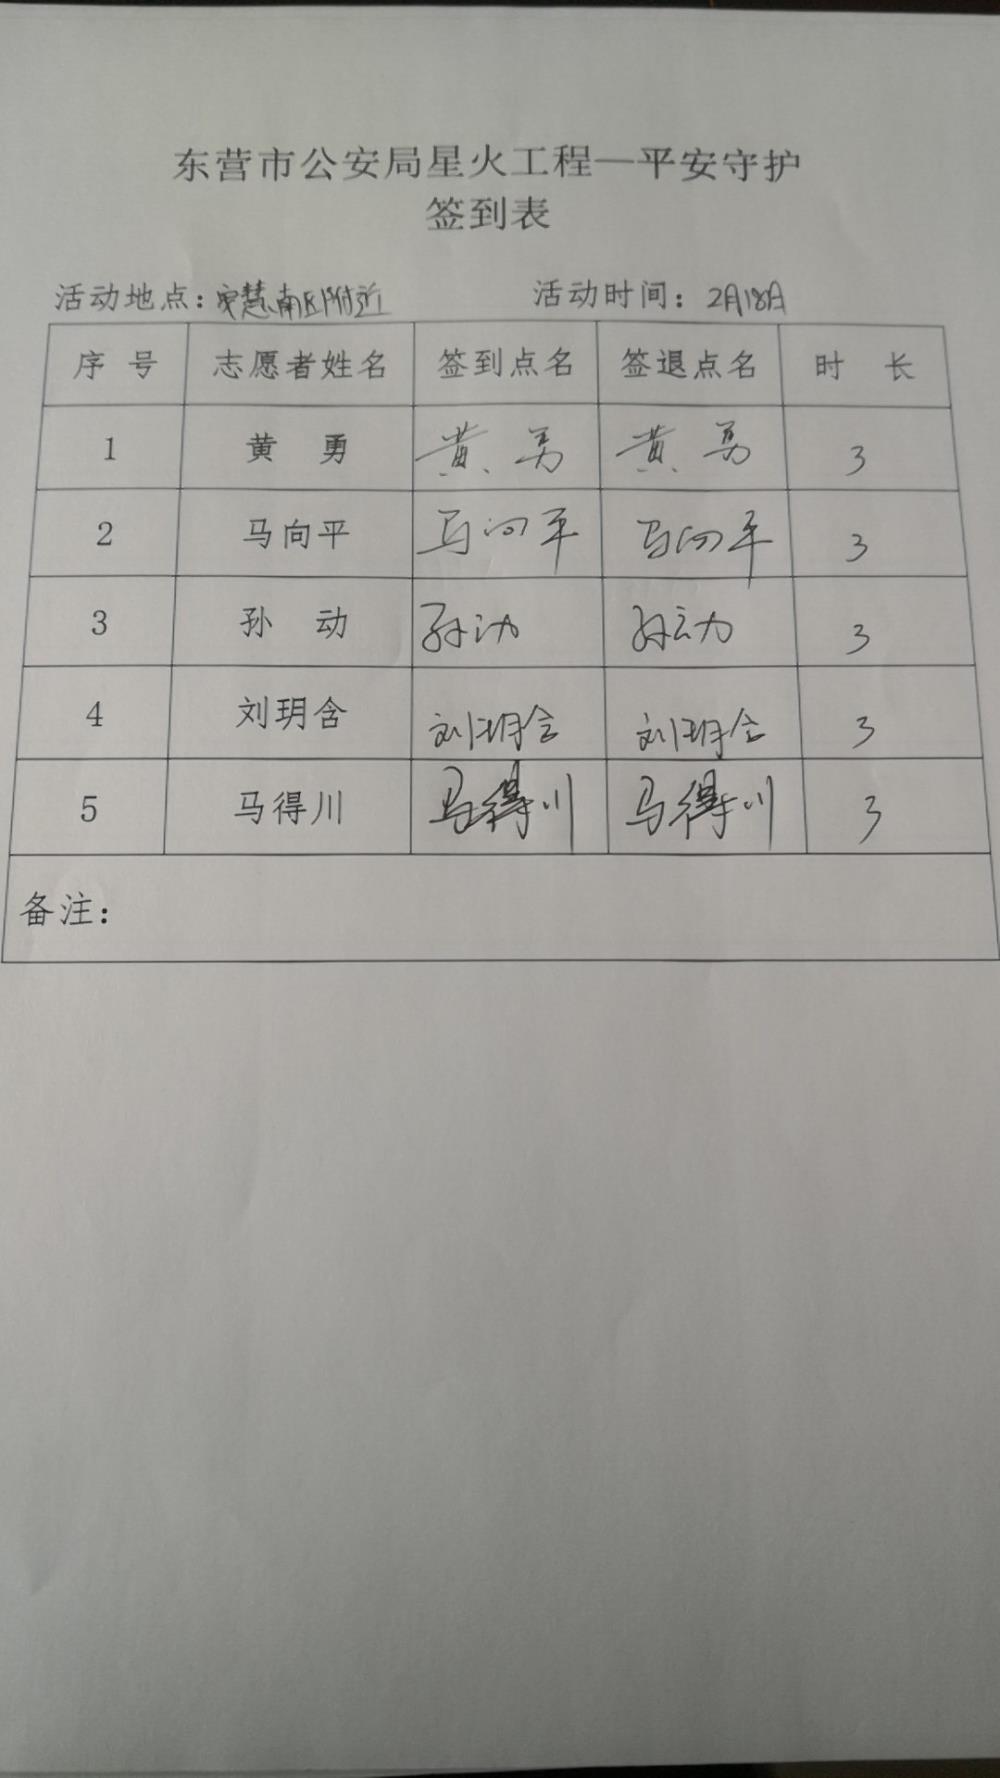 东营市公安局星火工程—平安守护
签到表
活动地点：安慧南区附近 活动时间：2月18日
序 号 志愿者姓名 签到点名 签退点名 时 长
1 黄 勇 黄勇 黄勇 3
2 马向平 马向平 马向平 3
3 孙 动 孙动 孙动 3
4 刘玥含 刘玥含 刘玥含 3
5 马得川 马得川 马得川 3
备注：